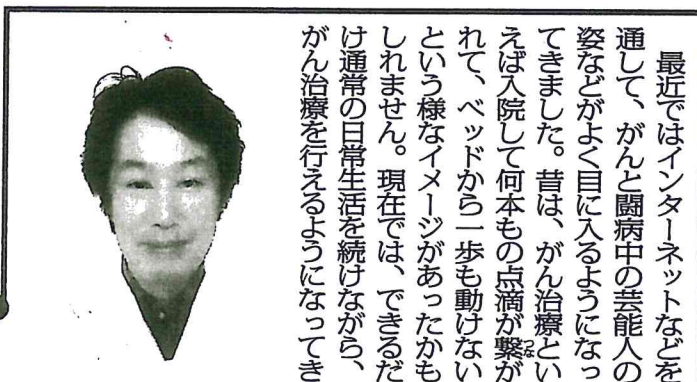 最近ではインターネットなどを
通して、がんと闘病中の芸能人の
姿などがよく目に入るようになっ
てきました。昔は、がん治療とい
えば入院して何本もの点滴が繋が
れて、ベッドから一歩も動けない
という様なイメージがあったかも
しれません。現在では、できるだ
け通常の日常生活を続けながら、
がん治療を行えるようになってき